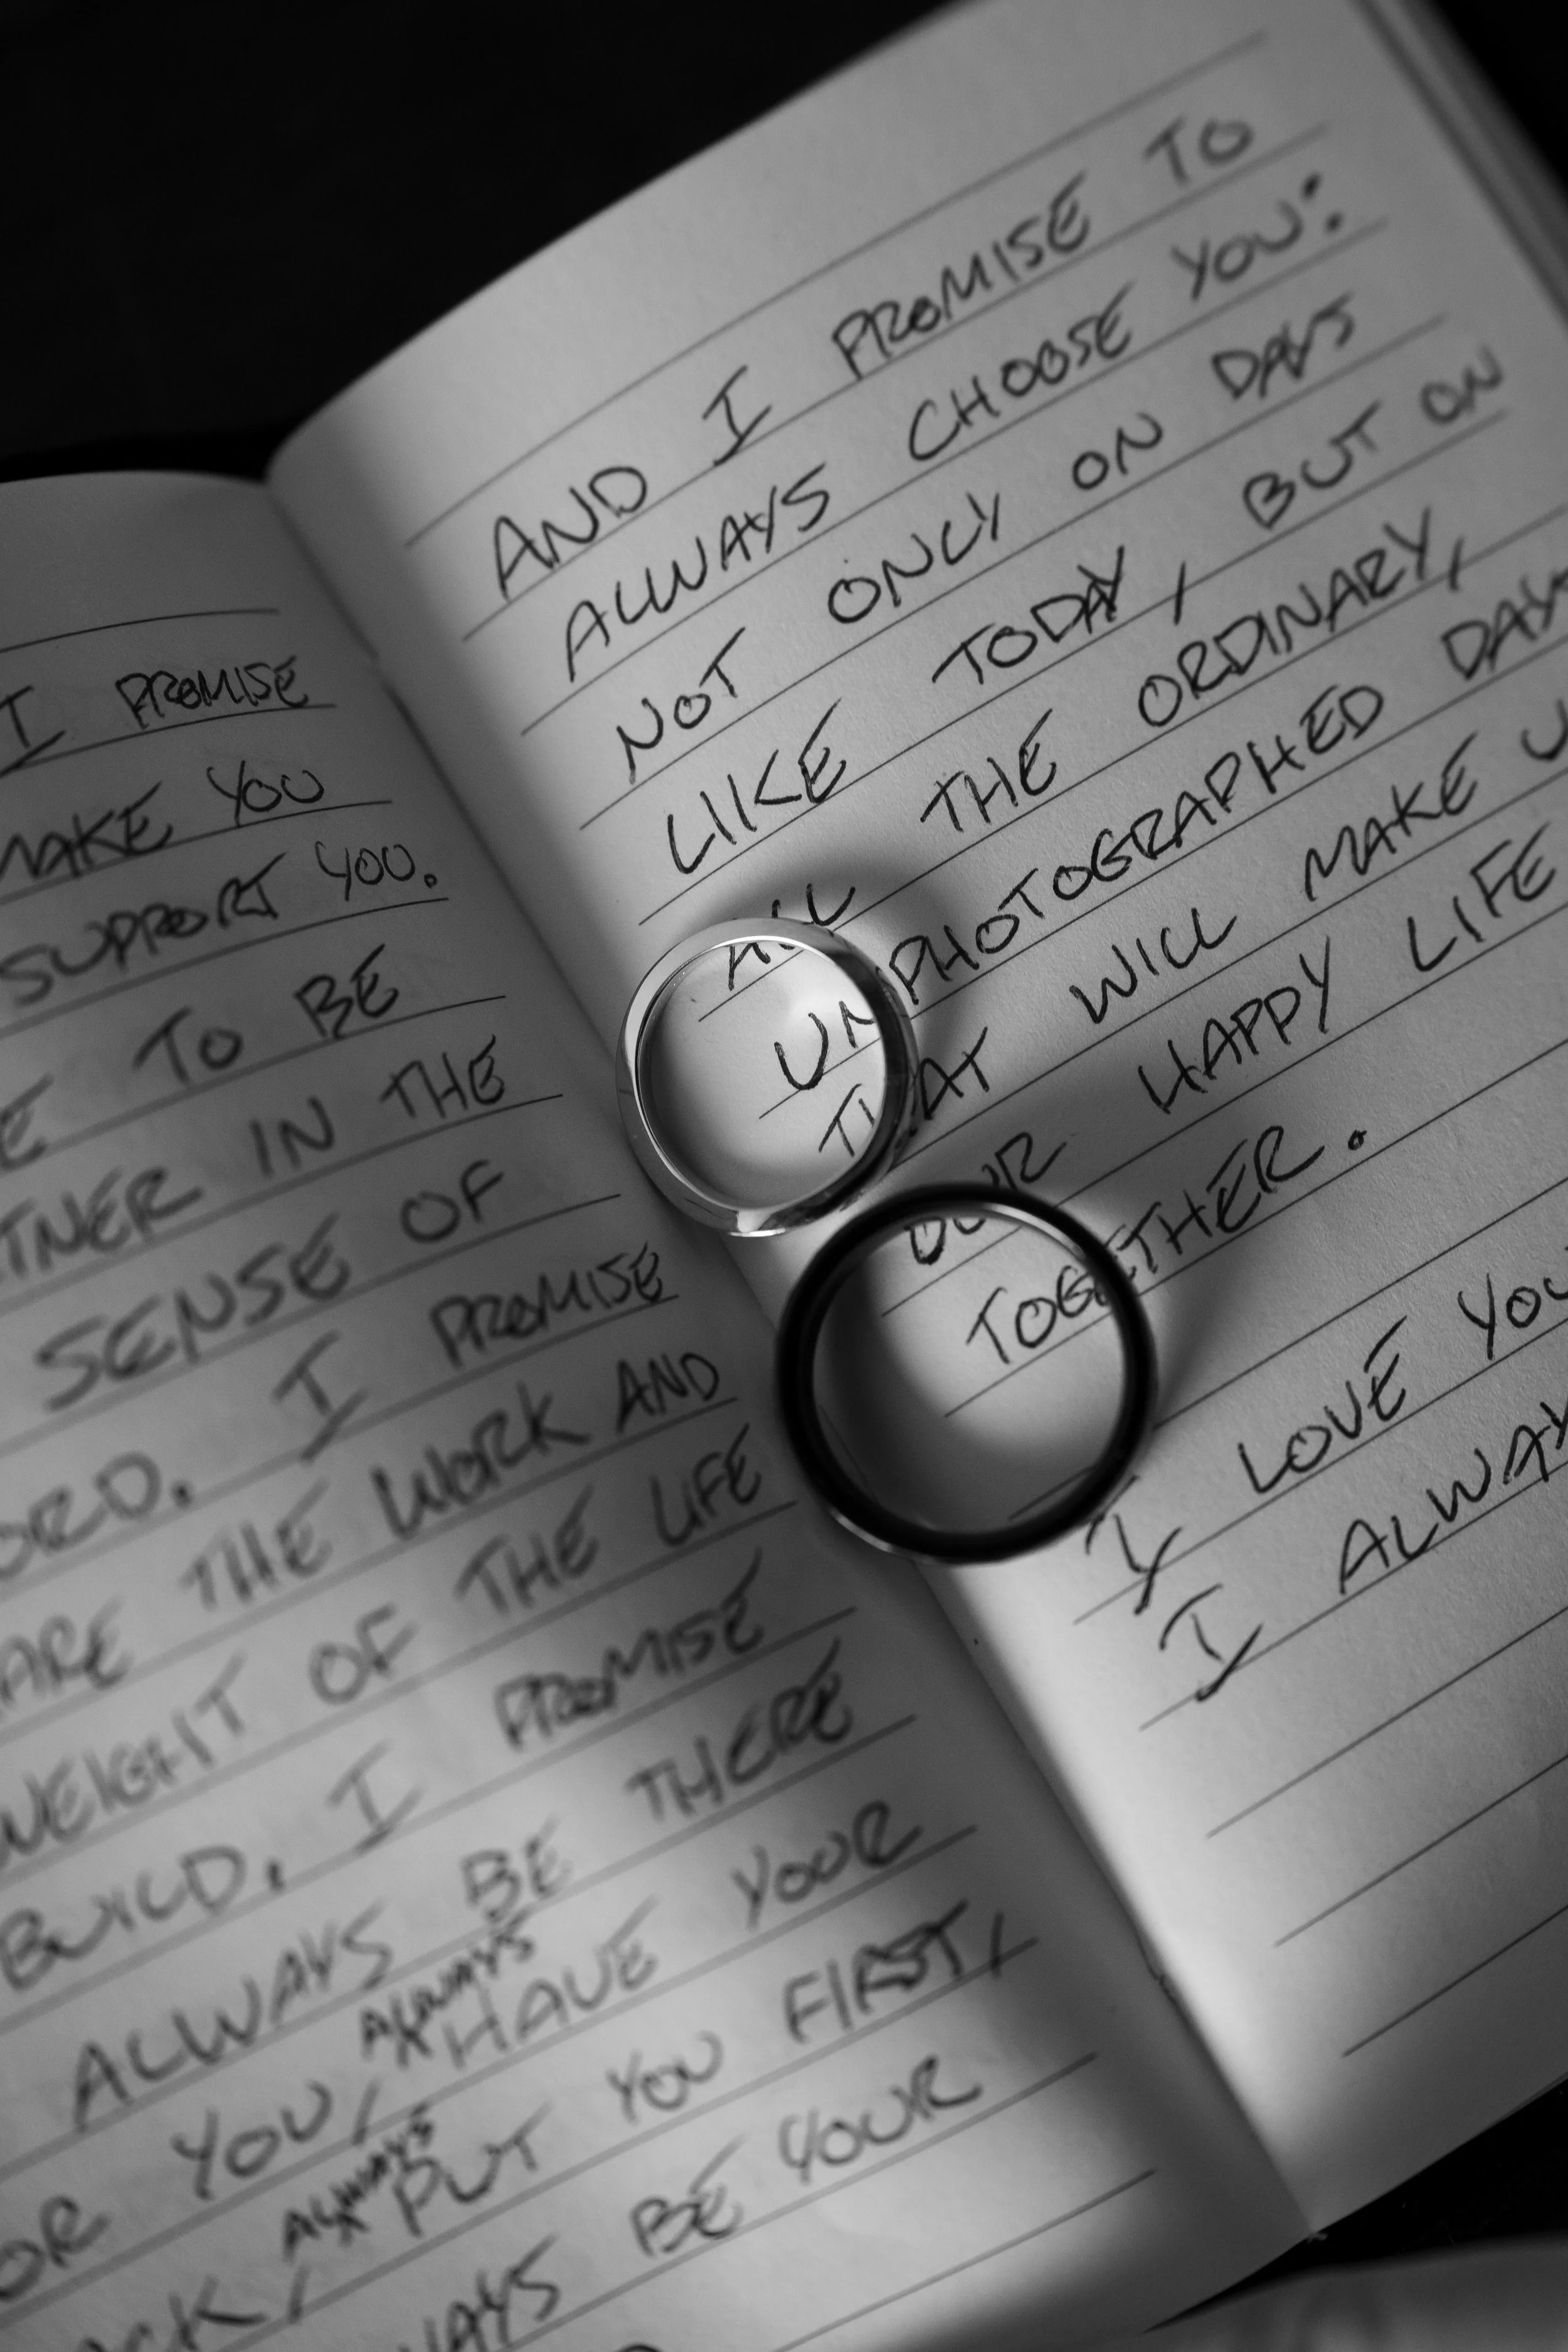 I PROMISE
MAKE YOU
SUPPORT YOU.
TO BE
IN THE
SENSE OF
I PROMISE
THE WORK AND
WEIGHT OF THE LIFE
BUILD. I PROMISE
ALWAYS BE THERE
YOU, ALWAYS HAVE YOUR
ALWAYS PUT YOU FIRST,
BE YOUR
AND I PROMISE TO
ALWAYS CHOOSE YOU:
NOT ONLY ON DAYS
LIKE TODAY, BUT ON
ALL THE ORDINARY,
UNPHOTOGRAPHED DAYS
THAT WILL MAKE
OUR HAPPY LIFE
TOGETHER.
I LOVE YOU
I